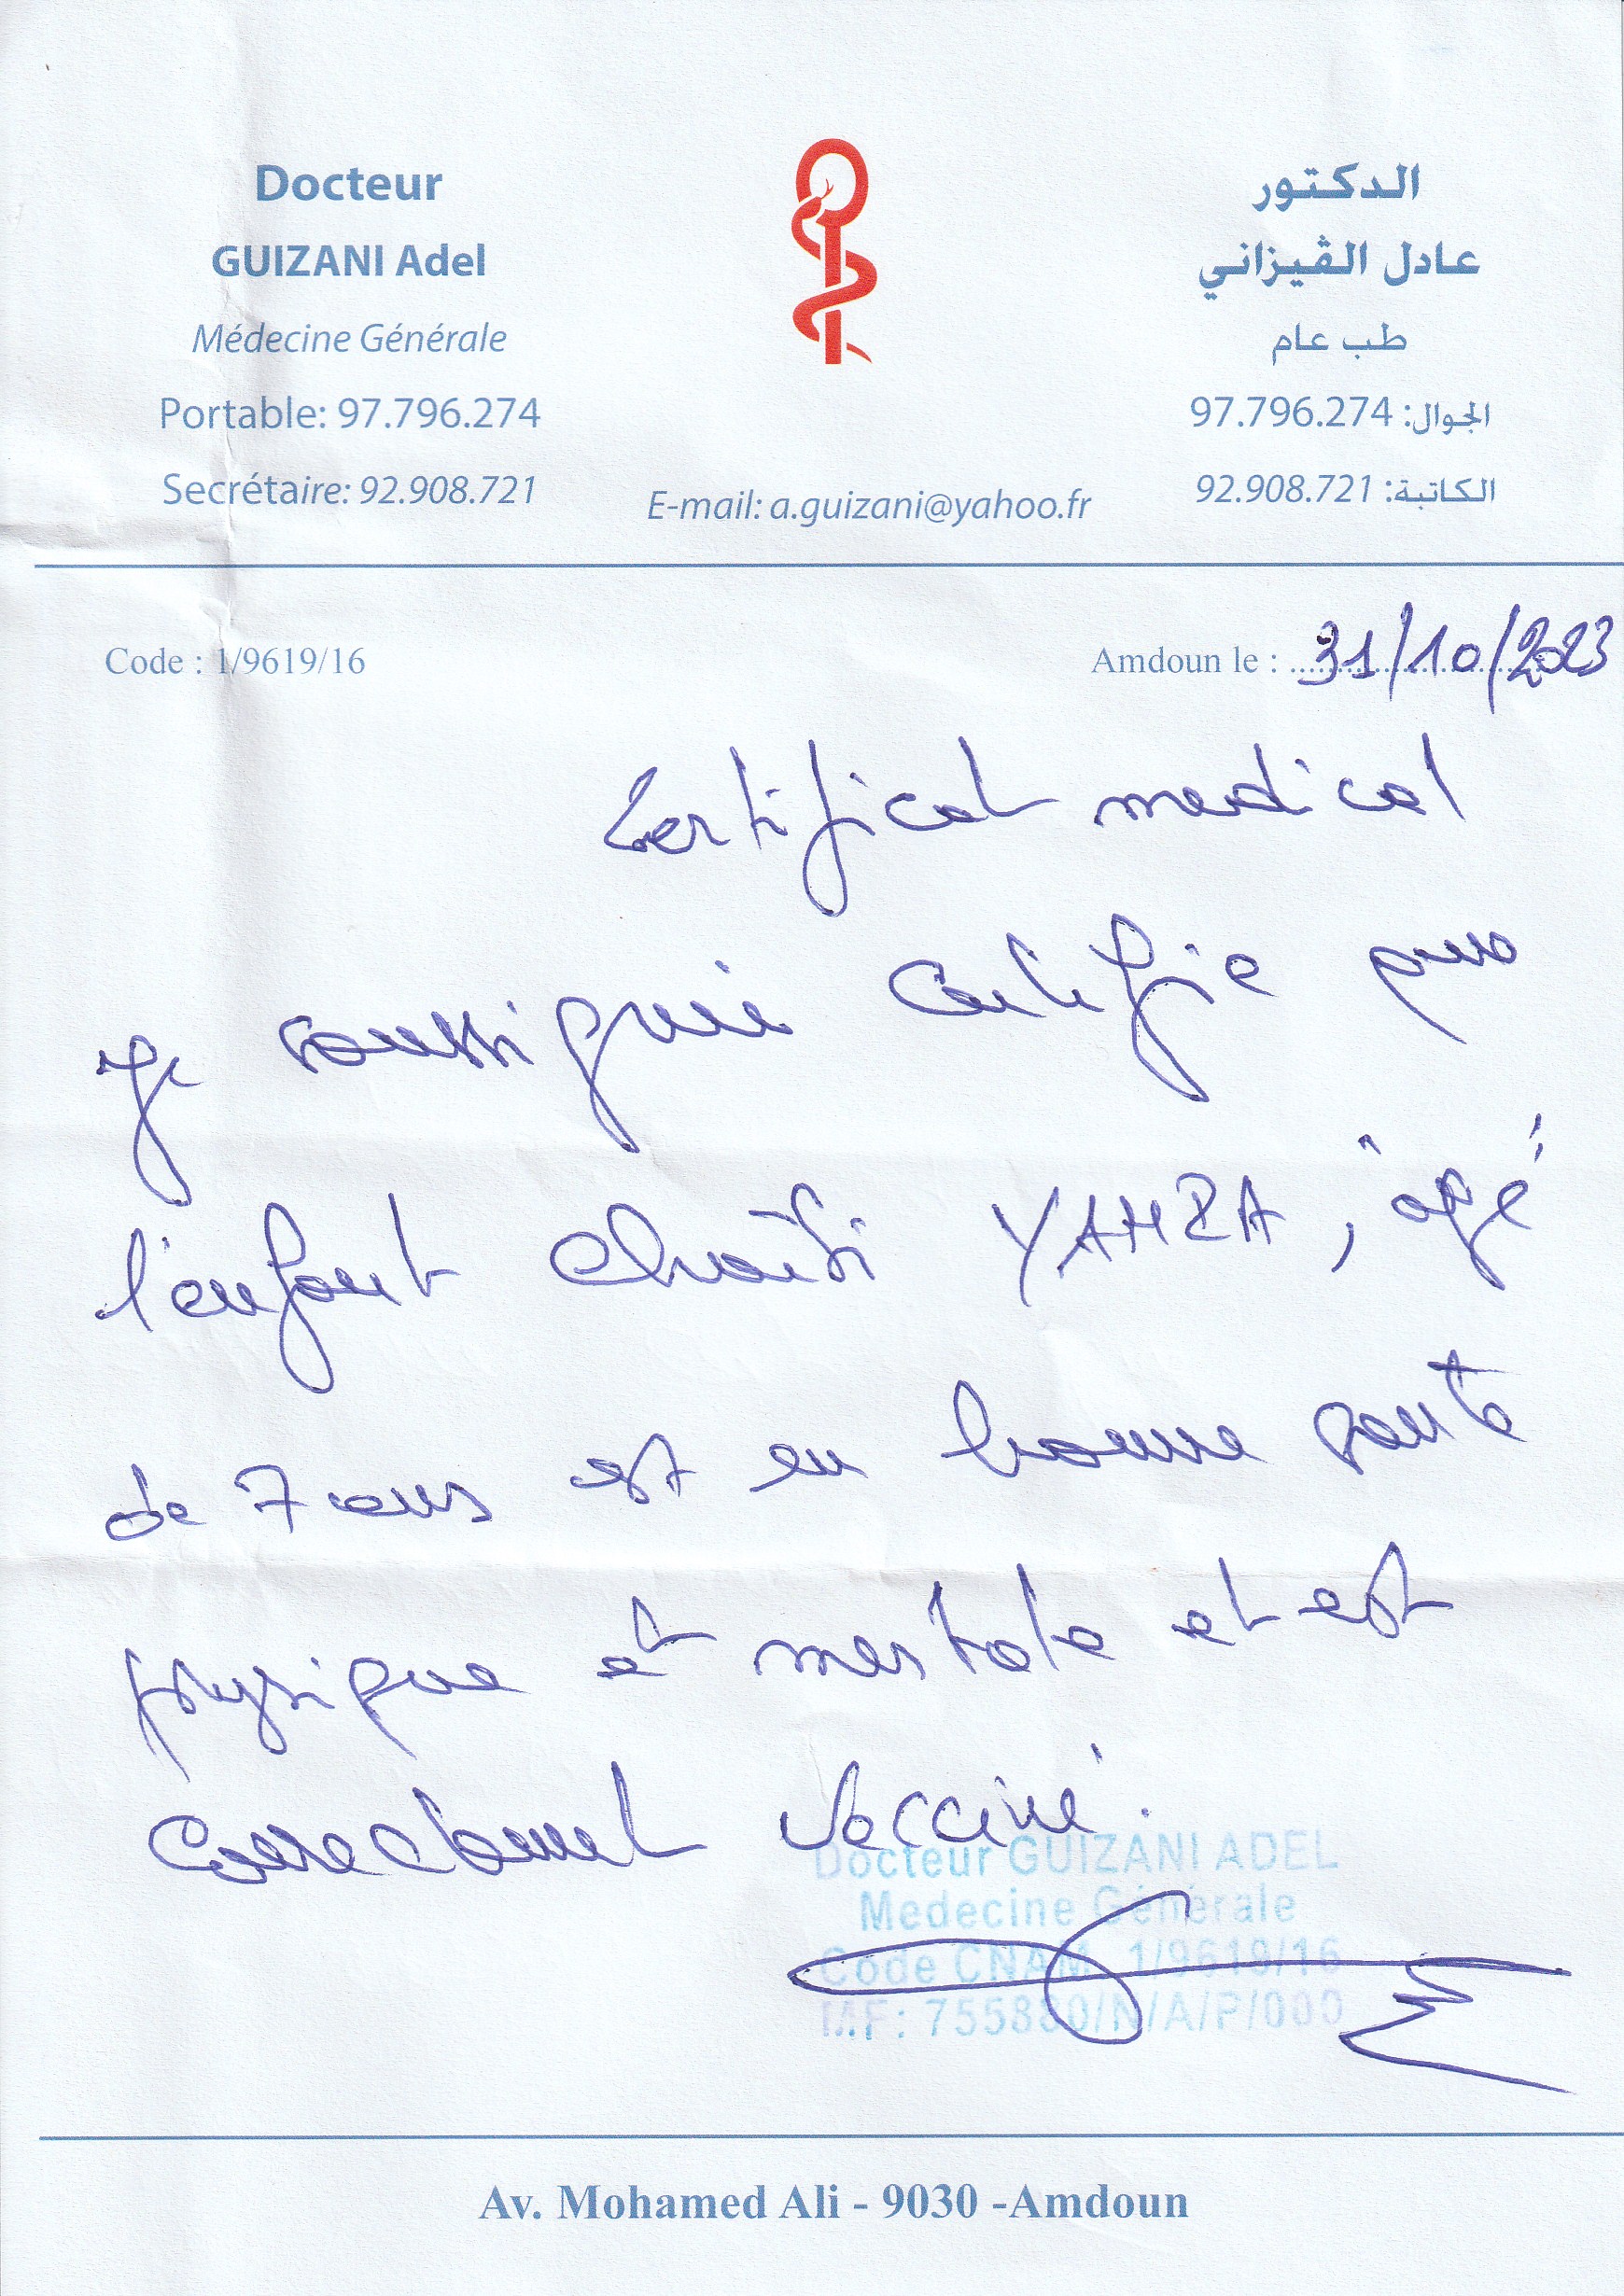 Docteur
GUIZANI Adel
Médecine Générale
Portable: 97.796.274
Secrétaire: 92.908.721
E-mail: a.guizani@yahoo.fr
الدكتور
عادل الڤيزاني
طب عام
الجوال: 97.796.274
الكاتبة: 92.908.721
Code : 1/9619/16
Amdoun le : 31/10/2023
Certificat medical
Je soussigné certifie que
l'enfant YAHIA, âgé
de 7 ans est en bonne santé
physique et mentale et est
correctement vacciné.
Docteur GUIZANI ADEL
Medecine Générale
Code CNAM 1/9619/16
MF: 755880/N/A/P/000
Av. Mohamed Ali - 9030 -Amdoun